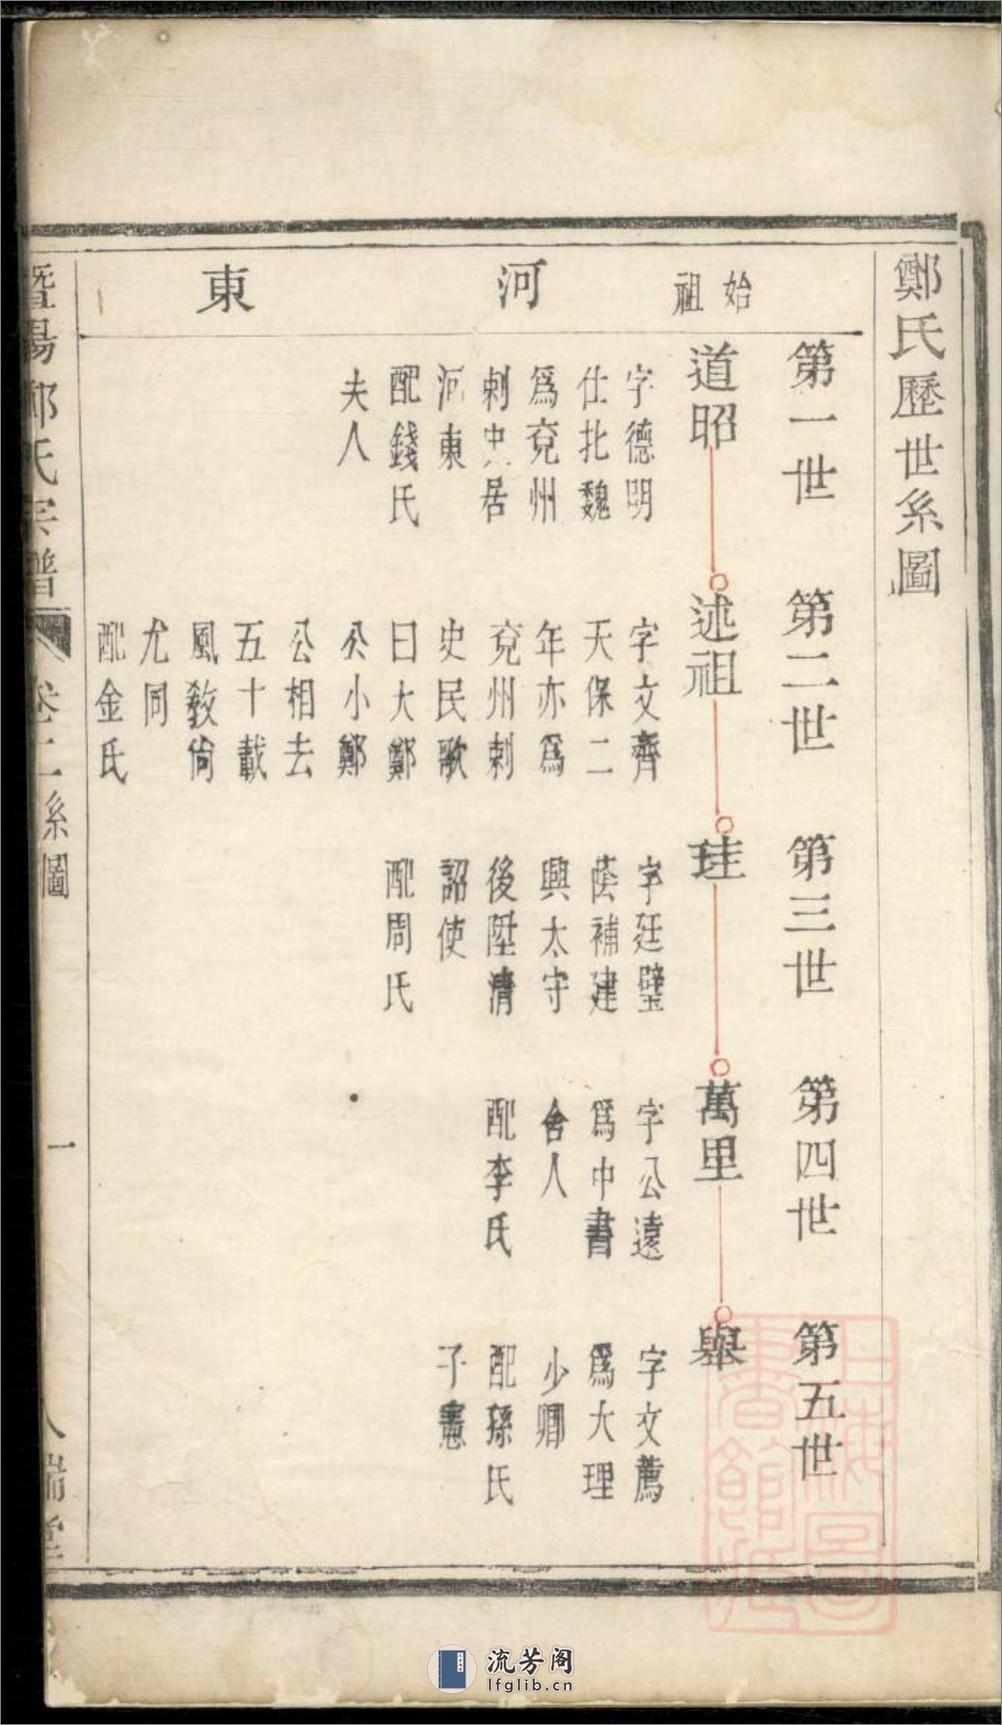 鄭氏歷世系圖
第一世
第二世
第三世
第四世
第五世
始祖
河東
道昭
字德明
仕北魏
爲兗州
刺史居
河東
配錢氏
夫人
述祖
字文齊
天保二
年亦爲
兗州刺
史民歌
曰大鄭
公小鄭
公相去
五十載
風敎尙
尤同
配金氏
珪
字廷璧
蔭補建
興太守
後陞清
詔使
配周氏
萬里
字公遠
爲中書
舍人
配李氏
舉
字文薦
爲大理
少卿
配孫氏
子憲
暨陽鄭氏宗譜
卷二系圖
一
人瑞堂
上海圖書館藏
流芳阁
lfglib.cn